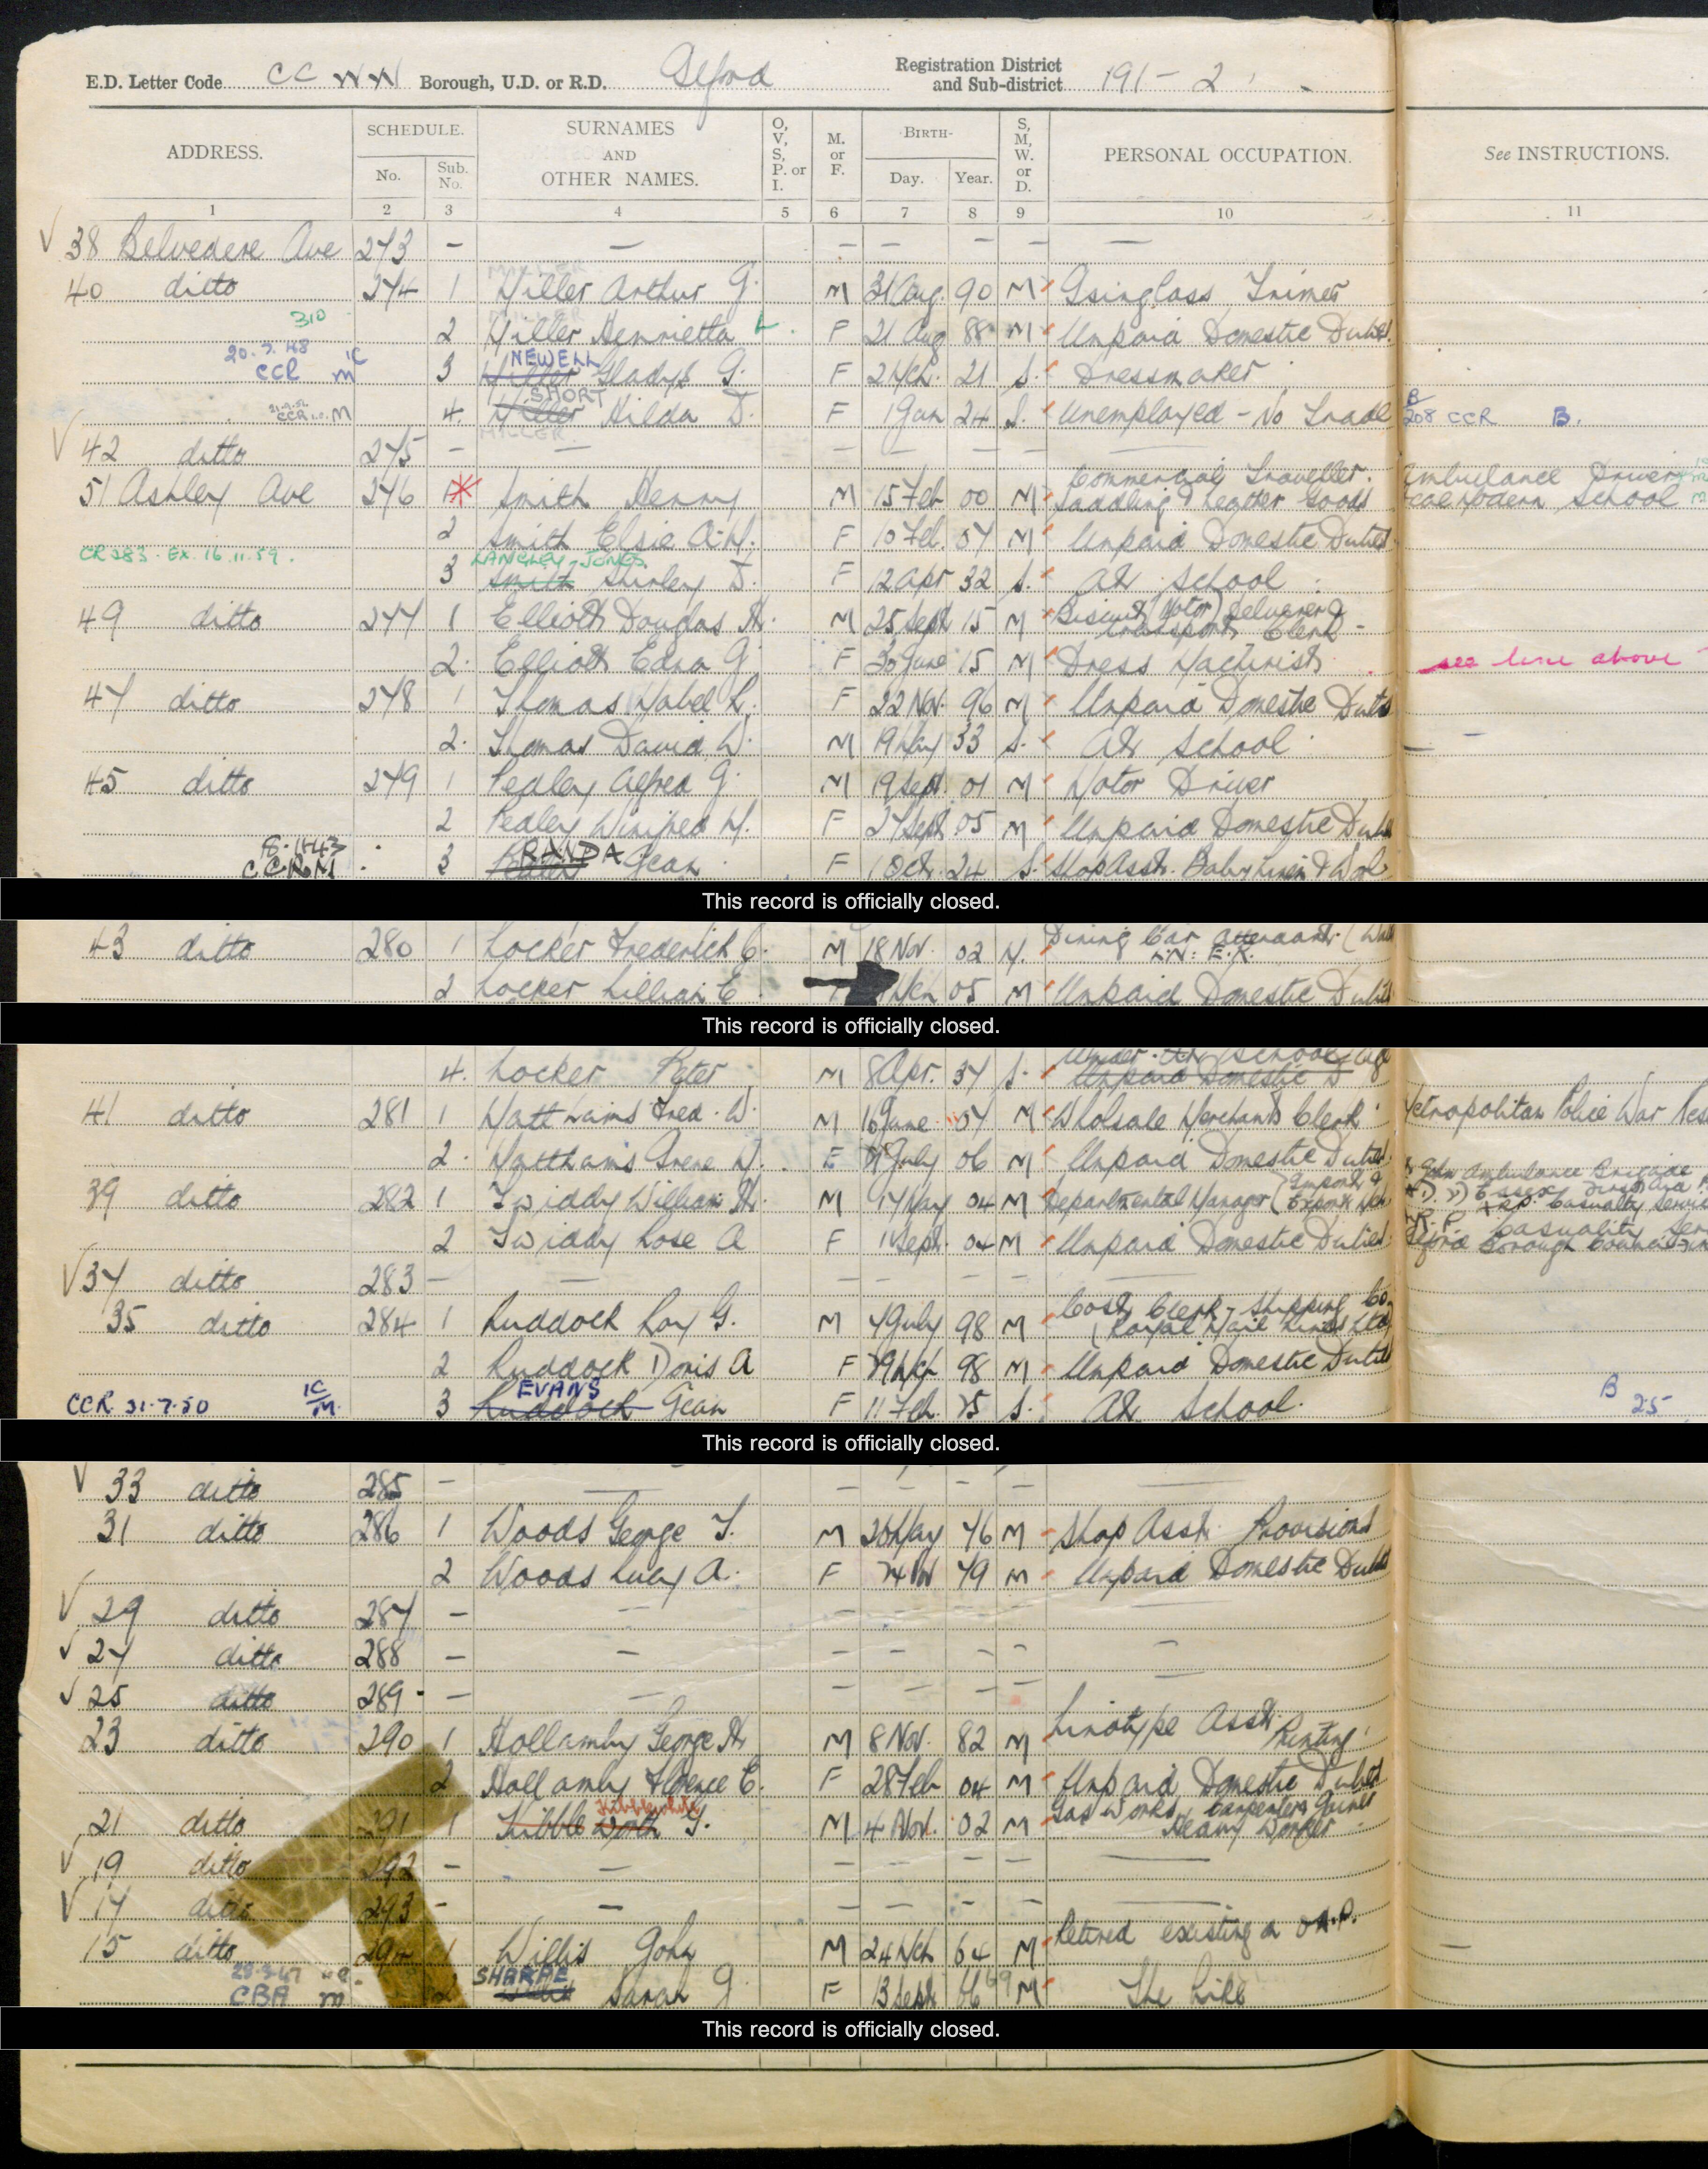 E.D. Letter Code CC WW Borough, U.D. or R.D. Ilford Registration District and Sub-district 191-2
ADDRESS. SCHEDULE. SURNAMES AND OTHER NAMES. O, V, S, P. or I. M. or F. BIRTH- S, M, W. or D. PERSONAL OCCUPATION. See INSTRUCTIONS.
No. Sub. No. Day. Year.
1 2 3 4 5 6 7 8 9 10 11
√ 38 Belvedere Ave 273 – – – – – – –
MILLER
40 ditto 274 1 Miller Arthur J. M 31 Aug 90 M
310 MILLER
2 Miller Henrietta L. F 21 Aug 88 M Unpaid Domestic Duties
20.3.48 IC NEWELL
CCR M 3 Miller Gladys J. F 2 Mch. 21 S. Dressmaker
SHORT
CCR M 4. Miller Hilda D. F 1 Jan 24 S. Unemployed - No Trade 208 CCR B.
MILLER
√ 42 ditto 275 – – – – – – –
Commercial Traveller. Ambulance Driver
51 Ashley Ave 276 1 Smith Henry M 15 Feb 00 M Saddling & Leather Goods Modern School
2 Smith Elsie A.M. F 10 Feb. 07 M Unpaid Domestic Duties
CR 283. Ex. 16.11.59. LANGLEY-JONES
3 Smith Shirley J. F 12 Apr 32 S. At School
49 ditto 277 1 Elliott Douglas H. M 25 Sept 15 M Biscuit (Motor) Deliverer & Transport Clerk
2. Elliott Edna G F 30 June 15 M Dress Machinist see line above
47 ditto 278 1 Thomas Mabel L. F 22 Nov. 96 M Unpaid Domestic Duts
2. Thomas David W. M 19 May 33 S. At School
45 ditto 279 1 Pedley Alfred G. M 19 Sept. 01 M Motor Driver
2 Pedley Winifred M. F 27 Sept 05 M Unpaid Domestic Duties
8.11.43 BANDA
CCR M 3 Pedley Jean F 1 Oct. 24 S. Shop Asst. Baby Linen & Wool
This record is officially closed.
43 ditto 280 1 Locker Frederich C. M 18 Nov. 02 M. Dining Car Attendant
L.N.E.R.
2 Locker Lillian E. Mch 05 M Unpaid Domestic Duties
This record is officially closed.
Under School Age
4. Locker Peter M 8 Apr. 37 S. Unpaid Domestic D
41 ditto 281 1 Matthams Fred. W. M 16 June 07 M Wholsale Merchants Clerk Metropolitan Police War Res
2. Matthams Irene M. F July 06 M Unpaid Domestic Duties
St John Ambulance Brigade
39 ditto 282 1 Twiddy William H. M 17 May 04 M Departmental Manager (Import & Export
A.R.P. Casualty Service
2 Twiddy Rose A F 1 Sept. 04 M Unpaid Domestic Duties
Ilford Borough Council
√ 37 ditto 283 – – – – – – –
35 ditto 284 1 Ruddock Roy G. M 7 July 98 M Cost Clerk - Shipping Co.
(Royal Mail Lines Ltd)
2 Ruddock Doris A F 29 Mch 98 M Unpaid Domestic Duties
EVANS B
CCR 31.7.50 IC/M. 3 Ruddock Jean F 11 Feb. 25 S. At School. 25
This record is officially closed.
√ 33 ditto 285 – – – – – – –
31 ditto 286 1 Woods George T. M 26 May 76 M Shop Asst. Provisions
2 Woods Lucy A. F 79 M Unpaid Domestic Duties
√ 29 ditto 287 – – – – – – –
√ 27 ditto 288 – – – – – – –
√ 25 ditto 289 – – – – – – –
23 ditto 290 1 Hollamby George H. M 8 Nov. 82 M Linotype Asst. Printing
2 Hollamby Florence E. F 28 Feb 04 M Unpaid Domestic Duties
Kibblewhite
21 ditto 291 1 Kibble G. M 4 Nov. 02 M Gas Works Carpenters Joiner
Heavy Worker
√ 19 ditto 292 – – – – – – –
√ 17 ditto 293 – – – – – – –
15 ditto 294 1 Willis John M 24 Mch 64 M Retired existing on O.A.P. –
SHARPE
CBA M 2 Willis Sarah J F 13 Sept 66 69 M The Like
This record is officially closed.